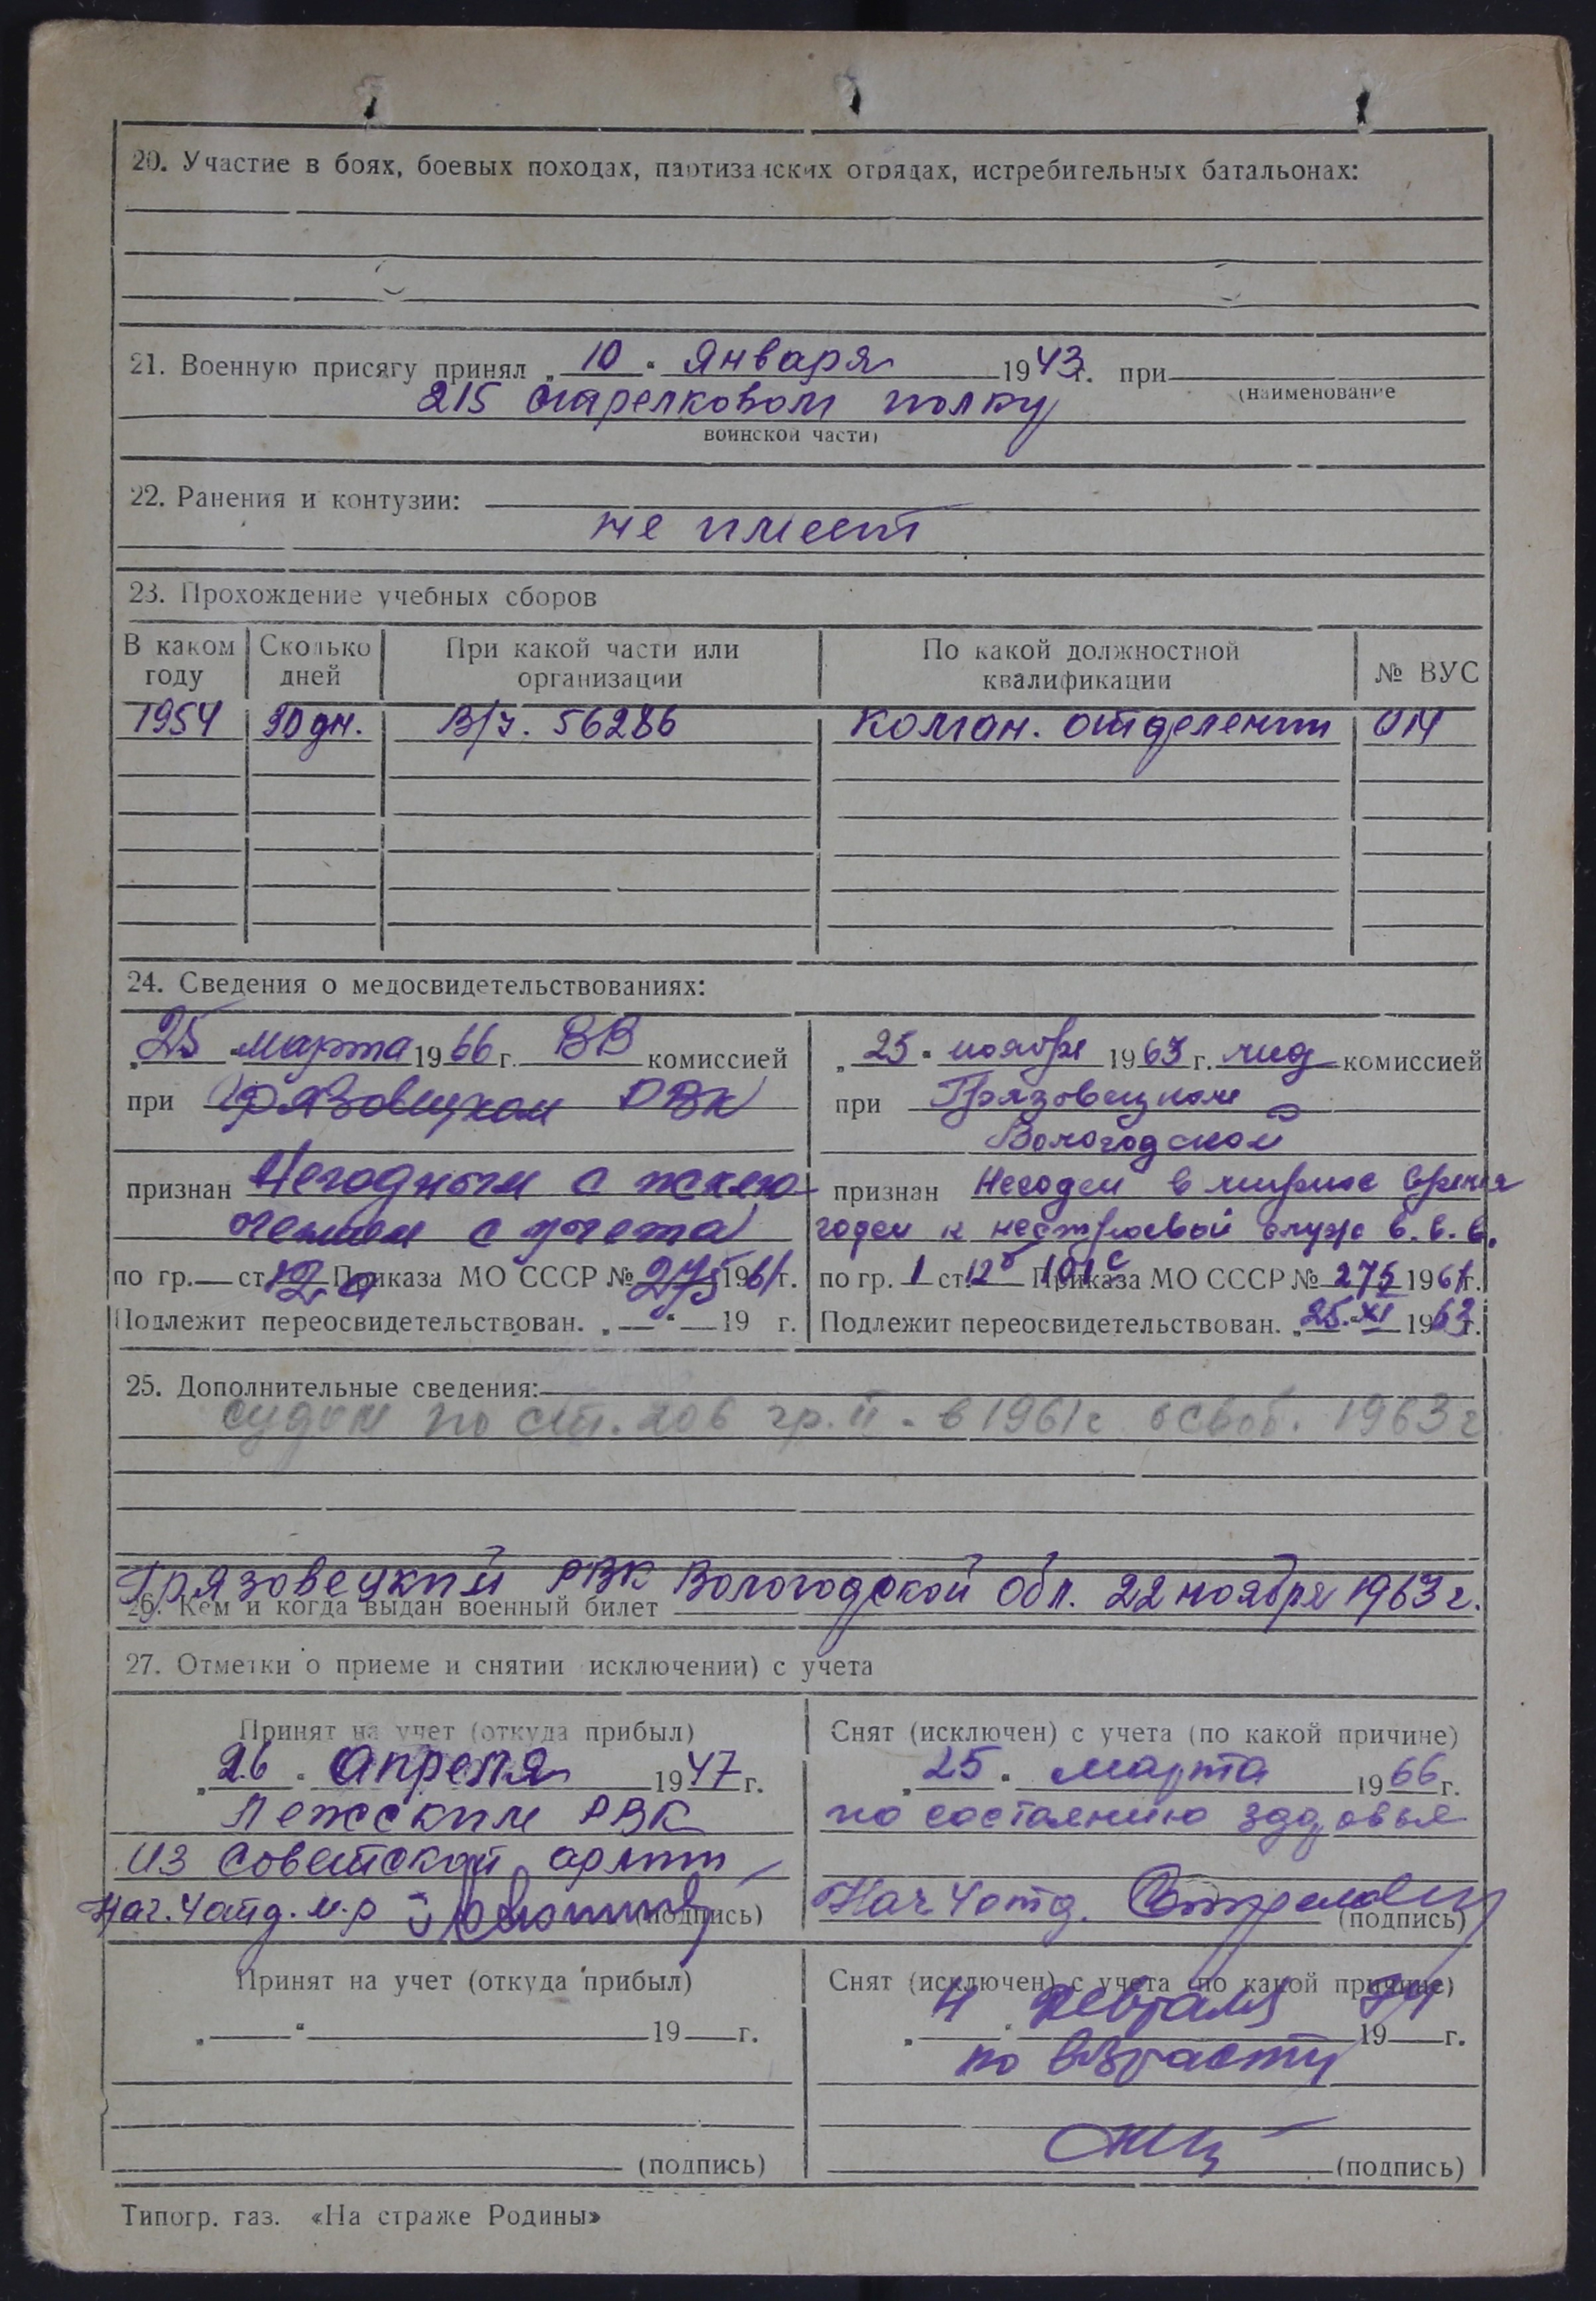 20. Участие в боях, боевых походах, партизанских отрядах, истребительных батальонах:
21. Военную присягу принял „10“ Января 1943 г. при
(наименование
215 стрелковом полку
воинской части)
22. Ранения и контузии:
не имеет
23. Прохождение учебных сборов
В каком году | Сколько дней | При какой части или организации | По какой должностной квалификации | № ВУС
1954 | дн. | В/ч. 56286 | Коман. отделения
24. Сведения о медосвидетельствованиях:
„25“ марта 1966 г. ВВ комиссией
при Грязовецком РВК
признан Негодным с исклю
чением с учета
по гр. — ст. 12а Приказа МО СССР № 275 1961 г.
Подлежит переосвидетельствован. „—“ — 19 г.
„25“ ноября 1963 г. мед комиссией
при Грязовецком
Вологодской
признан Негоден в мирное время
годен к нестроевой служ в.в.в.
по гр. 1 ст. 12б Приказа МО СССР № 275 1961 г.
Подлежит переосвидетельствован. „25.“ XI 1963 г.
25. Дополнительные сведения:
судим по ст. 206 гр. II - в 1961 г освоб. 1963 г
Грязовецкий РВК Вологодской Обл. 22 ноября 1963 г.
26. Кем и когда выдан военный билет
27. Отметки о приеме и снятии исключении) с учета
Принят на учет (откуда прибыл)
„26“ апреля 1947 г.
Лежским РВК
из Советской армии
Нач. 4 отд. м-р
(подпись)
Снят (исключен) с учета (по какой причине)
„25“ марта 1966 г.
по состоянию здоровья
Нач 4 отд.
(подпись)
Принят на учет (откуда прибыл)
„—“ 19 — г.
(подпись)
Снят (исключен) с учета (по какой причине)
„4“ февраля 1974 г.
по возрасту
(подпись)
Типогр. газ. «На страже Родины»